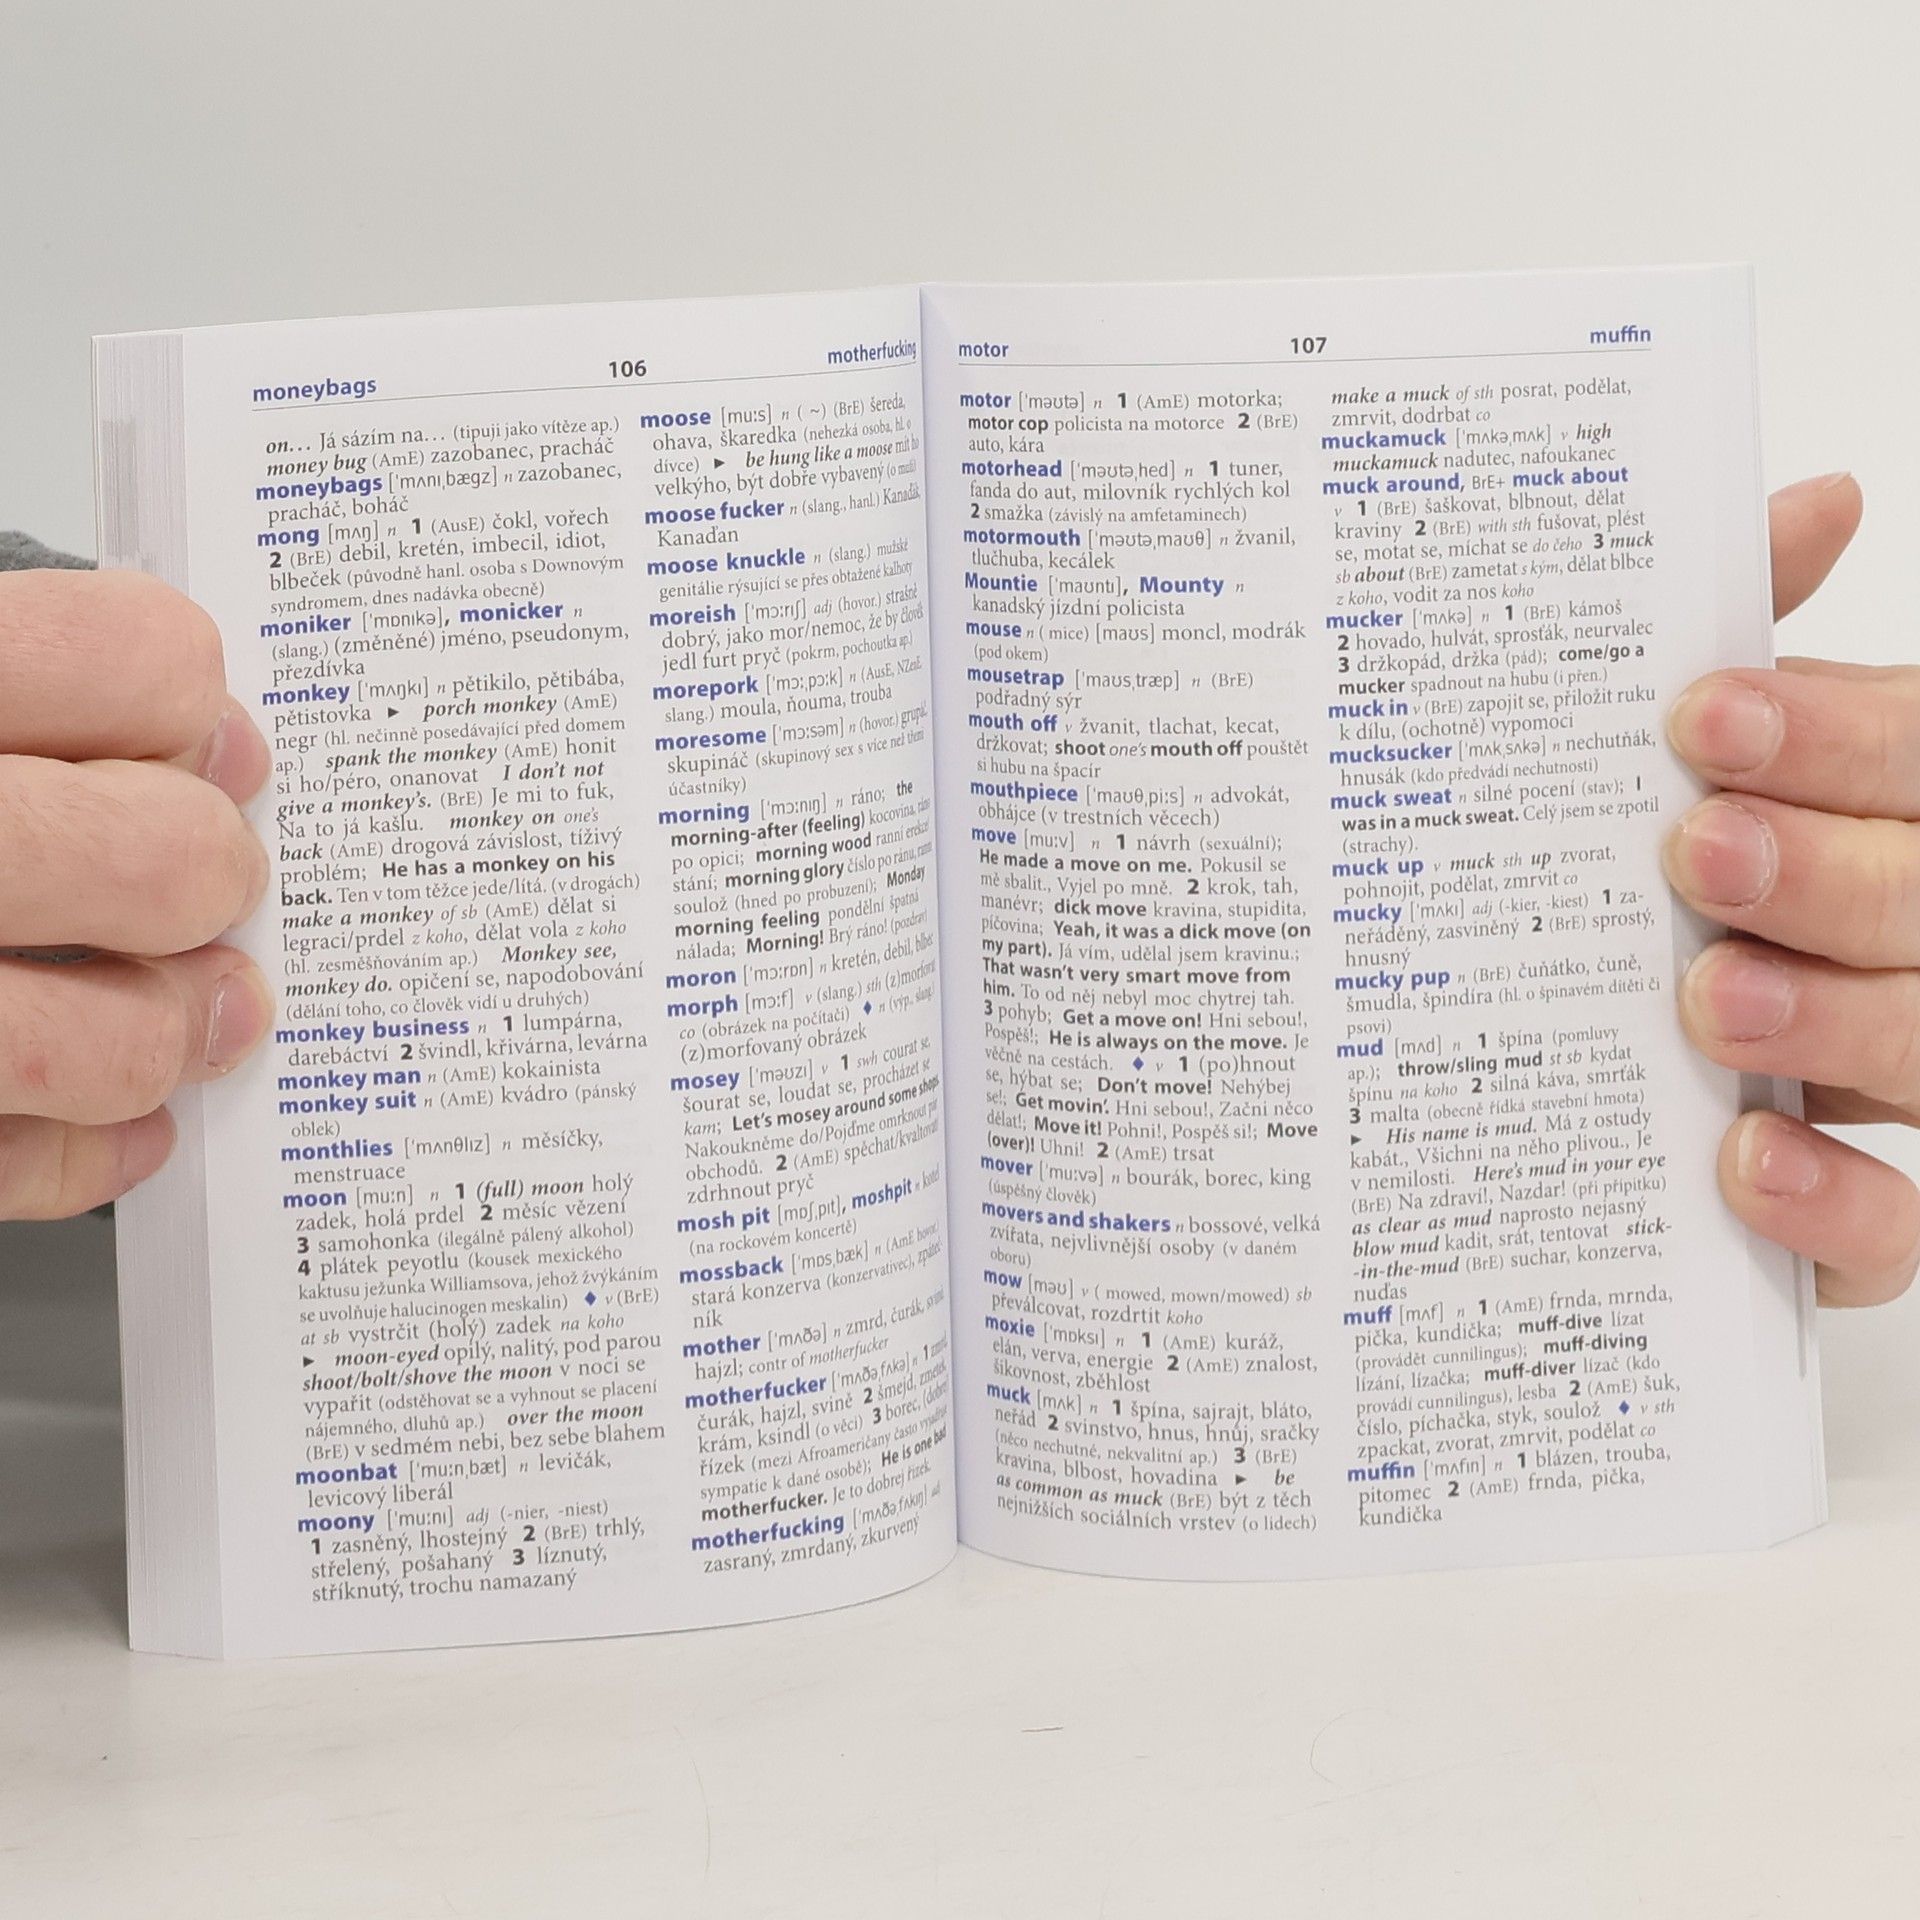 moneybags
106
motherfucking
on… Já sázím na… (tipuji jako vítěze ap.)
money bug (AmE) zazobanec, pracháč
moneybags [ˈmʌnɪˌbægz] n zazobanec,
pracháč, boháč
mong [mʌŋ] n 1 (AusE) čokl, vořech
2 (BrE) debil, kretén, imbecil, idiot,
blbeček (původně hanl. osoba s Downovým
syndromem, dnes nadávka obecně)
moniker [ˈmɒnɪkə], monicker n
(slang.) (změněné) jméno, pseudonym,
přezdívka
monkey [ˈmʌŋkɪ] n pětikilo, pětibába,
pětistovka ► porch monkey (AmE)
negr (hl. nečinně posedávající před domem
ap.) spank the monkey (AmE) honit
si ho/péro, onanovat I don't not
give a monkey's. (BrE) Je mi to fuk,
Na to já kašlu. monkey on one's
back (AmE) drogová závislost, tíživý
problém; He has a monkey on his
back. Ten v tom těžce jede/lítá. (v drogách)
make a monkey of sb (AmE) dělat si
legraci/prdel z koho, dělat vola z koho
(hl. zesměšňováním ap.) Monkey see,
monkey do. opičení se, napodobování
(dělání toho, co člověk vidí u druhých)
monkey business n 1 lumpárna,
darebáctví 2 švindl, křivárna, levárna
monkey man n (AmE) kokainista
monkey suit n (AmE) kvádro (pánský
oblek)
monthlies [ˈmʌnθlɪz] n měsíčky,
menstruace
moon [muːn] n 1 (full) moon holý
zadek, holá prdel 2 měsíc vězení
3 samohonka (ilegálně pálený alkohol)
4 plátek peyotlu (kousek mexického
kaktusu ježunka Williamsova, jehož žvýkáním
se uvolňuje halucinogen meskalin) ◆ v (BrE)
at sb vystrčit (holý) zadek na koho
► moon-eyed opilý, nalitý, pod parou
shoot/bolt/shove the moon v noci se
vypařit (odstěhovat se a vyhnout se placení
nájemného, dluhů ap.) over the moon
(BrE) v sedmém nebi, bez sebe blahem
moonbat [ˈmuːnˌbæt] n levičák,
levicový liberál
moony [ˈmuːnɪ] adj (-nier, -niest)
1 zasněný, lhostejný 2 (BrE) trhlý,
střelený, pošahaný 3 líznutý,
stříknutý, trochu namazaný
moose [muːs] n ( ~) (BrE) šereda,
ohava, škaredka (nehezká osoba, hl. o
dívce) ► be hung like a moose mít ho
velkýho, být dobře vybavený (o muži)
moose fucker n (slang., hanl.) Kanaďák,
Kanaďan
moose knuckle n (slang.) mužské
genitálie rýsující se přes obtažené kalhoty
moreish [ˈmɔːrɪʃ] adj (hovor.) strašně
dobrý, jako mor/nemoc, že by člověk
jedl furt pryč (pokrm, pochoutka ap.)
morepork [ˈmɔːˌpɔːk] n (AusE, NZenE,
slang.) moula, ňouma, trouba
moresome [ˈmɔːsəm] n (hovor.) grupáč,
skupináč (skupinový sex s více než třemi
účastníky)
morning [ˈmɔːnɪŋ] n ráno; the
morning-after (feeling) kocovina, ráno
po opici; morning wood ranní erekce
stání; morning glory číslo po ránu, ranní
soulož (hned po probuzení); Monday
morning feeling pondělní špatná
nálada; Morning! Brý ráno! (pozdrav)
moron [ˈmɔːrɒn] n kretén, debil, blbec
morph [mɔːf] v (slang.) sth (z)morfovat
co (obrázek na počítači) ◆ n (výp., slang.)
(z)morfovaný obrázek
mosey [ˈməʊzɪ] v 1 swh courat se,
šourat se, loudat se, procházet se
kam; Let's mosey around some shops.
Nakoukněme do/Pojďme omrknout pár
obchodů. 2 (AmE) spěchat/kvaltovat
zdrhnout pryč
mosh pit [mɒʃˌpɪt], moshpit n kotel
(na rockovém koncertě)
mossback [ˈmɒsˌbæk] n (AmE hovor.)
stará konzerva (konzervativec), zpáteč-
ník
mother [ˈmʌðə] n zmrd, čurák, svině
hajzl; contr of motherfucker
motherfucker [ˈmʌðəˌfʌkə] n 1 zmrd,
čurák, hajzl, svině 2 šmejd, zmetek,
krám, ksindl (o věci) 3 borec, (dobrej)
řízek (mezi Afroameričany často vyjadřuje
sympatie k dané osobě); He is one bad
motherfucker. Je to dobrej řízek.
motherfucking [ˈmʌðəˌfʌkɪŋ] adj
zasraný, zmrdaný, zkurvený
motor
107
muffin
motor [ˈməʊtə] n 1 (AmE) motorka;
motor cop policista na motorce 2 (BrE)
auto, kára
motorhead [ˈməʊtəˌhed] n 1 tuner,
fanda do aut, milovník rychlých kol
2 smažka (závislý na amfetaminech)
motormouth [ˈməʊtəˌmaʊθ] n žvanil,
tlučhuba, kecálek
Mountie [ˈmaʊntɪ], Mounty n
kanadský jízdní policista
mouse n ( mice) [maʊs] moncl, modrák
(pod okem)
mousetrap [ˈmaʊsˌtræp] n (BrE)
podřadný sýr
mouth off v žvanit, tlachat, kecat,
držkovat; shoot one's mouth off pouštět
si hubu na špacír
mouthpiece [ˈmaʊθˌpiːs] n advokát,
obhájce (v trestních věcech)
move [muːv] n 1 návrh (sexuální);
He made a move on me. Pokusil se
mě sbalit., Vyjel po mně. 2 krok, tah,
manévr; dick move kravina, stupidita,
píčovina; Yeah, it was a dick move (on
my part). Já vím, udělal jsem kravinu.;
That wasn't very smart move from
him. To od něj nebyl moc chytrej tah.
3 pohyb; Get a move on! Hni sebou!,
Pospěš!; He is always on the move. Je
věčně na cestách. ◆ v 1 (po)hnout
se, hýbat se; Don't move! Nehýbej
se!; Get movin'. Hni sebou!, Začni něco
dělat!; Move it! Pohni!, Pospěš si!; Move
(over)! Uhni! 2 (AmE) trsat
mover [ˈmuːvə] n bourák, borec, king
(úspěšný člověk)
movers and shakers n bossové, velká
zvířata, nejvlivnější osoby (v daném
oboru)
mow [məʊ] v ( mowed, mown/mowed) sb
převálcovat, rozdrtit koho
moxie [ˈmɒksɪ] n 1 (AmE) kuráž,
elán, verva, energie 2 (AmE) znalost,
šikovnost, zběhlost
muck [mʌk] n 1 špína, sajrajt, bláto,
neřád 2 svinstvo, hnus, hnůj, sračky
(něco nechutné, nekvalitní ap.) 3 (BrE)
kravina, blbost, hovadina ► be
as common as muck (BrE) být z těch
nejnižších sociálních vrstev (o lidech)
make a muck of sth posrat, podělat,
zmrvit, dodrbat co
muckamuck [ˈmʌkəˌmʌk] v high
muckamuck nadutec, nafoukanec
muck around, BrE+ muck about
v 1 (BrE) šaškovat, blbnout, dělat
kraviny 2 (BrE) with sth fušovat, plést
se, motat se, míchat se do čeho 3 muck
sb about (BrE) zametat s kým, dělat blbce
z koho, vodit za nos koho
mucker [ˈmʌkə] n 1 (BrE) kámoš
2 hovado, hulvát, sprosťák, neurvalec
3 držkopád, držka (pád); come/go a
mucker spadnout na hubu (i přen.)
muck in v (BrE) zapojit se, přiložit ruku
k dílu, (ochotně) vypomoci
mucksucker [ˈmʌkˌsʌkə] n nechutňák,
hnusák (kdo předvádí nechutnosti)
muck sweat n silné pocení (stav); I
was in a muck sweat. Celý jsem se zpotil
(strachy).
muck up v muck sth up zvorat,
pohnojit, podělat, zmrvit co
mucky [ˈmʌkɪ] adj (-kier, -kiest) 1 za-
neřáděný, zasviněný 2 (BrE) sprostý,
hnusný
mucky pup n (BrE) čuňátko, čuně,
šmudla, špindíra (hl. o špinavém dítěti či
psovi)
mud [mʌd] n 1 špína (pomluvy
ap.); throw/sling mud st sb kydat
špínu na koho 2 silná káva, smrťák
3 malta (obecně řídká stavební hmota)
► His name is mud. Má z ostudy
kabát., Všichni na něho plivou., Je
v nemilosti. Here's mud in your eye
(BrE) Na zdraví!, Nazdar! (při přípitku)
as clear as mud naprosto nejasný
blow mud kadit, srát, tentovat stick-
-in-the-mud (BrE) suchar, konzerva,
nuďas
muff [mʌf] n 1 (AmE) frnda, mrnda,
pička, kundička; muff-dive lízat
(provádět cunnilingus); muff-diving
lízání, lízačka; muff-diver lízač (kdo
provádí cunnilingus), lesba 2 (AmE) šuk,
číslo, píchačka, styk, soulož ◆ v sth
zpackat, zvorat, zmrvit, podělat co
muffin [ˈmʌfɪn] n 1 blázen, trouba,
pitomec 2 (AmE) frnda, pička,
kundička